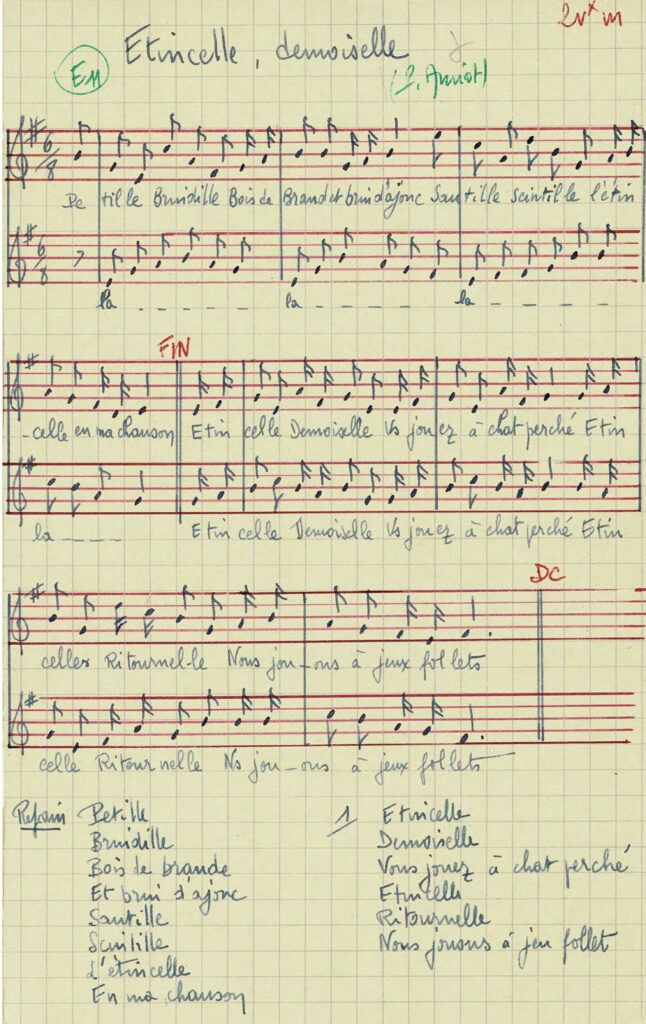 2v× m
Etincelle, demoiselle
E11
(P. Amiot)
6/8
Pe tille Brindille Bois de Brand et brin d'ajonc Sautille Scintille l'étin
6/8
la _ _ _ _ _ la _ _ _ _ _ la _ _ _ _ _
FIN
-celle en ma chanson Etin celle Demoiselle Vs jouez à chat perché Etin
la _ _ _ _ Etin celle Demoiselle Vs jouez à chat perché Etin
DC
celler Ritournel-le Nous jou-ons à jeux follets
celle Ritournelle Ns jou-ons à jeux follets
Refrain Petille
Brindille
Bois de brande
Et brin d'ajonc
Sautille
Scintille
L'étincelle
En ma chanson
1 Etincelle
Demoiselle
Vous jouez à chat perché
Etincelle
Ritournelle
Nous jouons à jeu follet